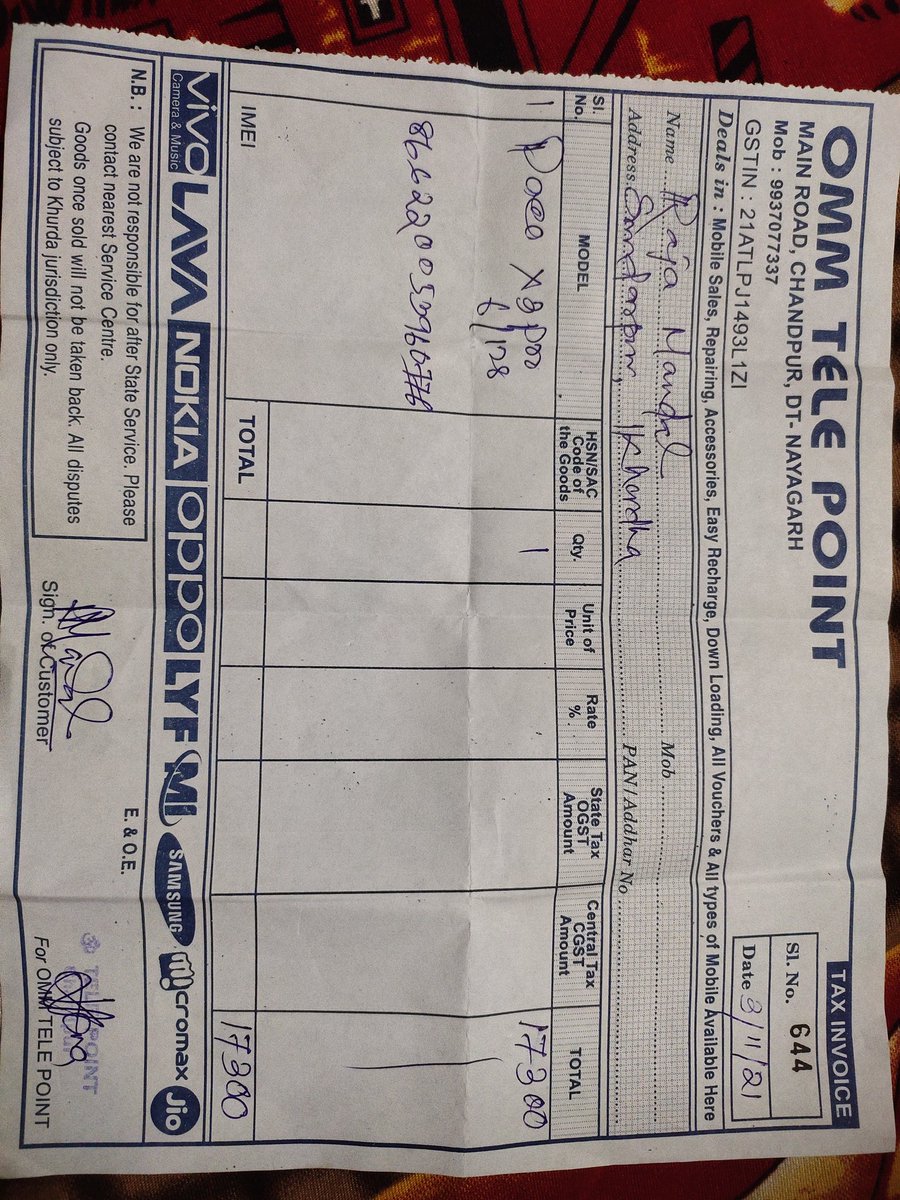 TAX INVOICE
OMM TELE POINT
MAIN ROAD, CHANDPUR, DT- NAYAGARH
Mob : 9937077337
GSTIN : 21ATLPJ1493L1ZI
Sl. No. 644
Date 3/11/21
Deals in : Mobile Sales, Repairing, Accessories, Easy Recharge, Down Loading, All Vouchers & All types of Mobile Available Here
Name Raja Mandal Mob
Address Khordha PAN / Addhar No
Sl. No. MODEL HSN/SAC Code of the Goods Qty. Unit of Price Rate % State Tax OGST Amount Central Tax CGST Amount TOTAL
1 Poco X3 pro 1 17300
6/128
IMEI TOTAL 17300
vivo Camera & Music LAVA NOKIA OPPO LYF MI SAMSUNG Micromax Jio
N.B. : We are not responsible for after State Service. Please
contact nearest Service Centre.
Goods once sold will not be taken back. All disputes
subject to Khurda jurisdiction only.
E. & O.E.
Sign. of Customer
For OMM TELE POINT